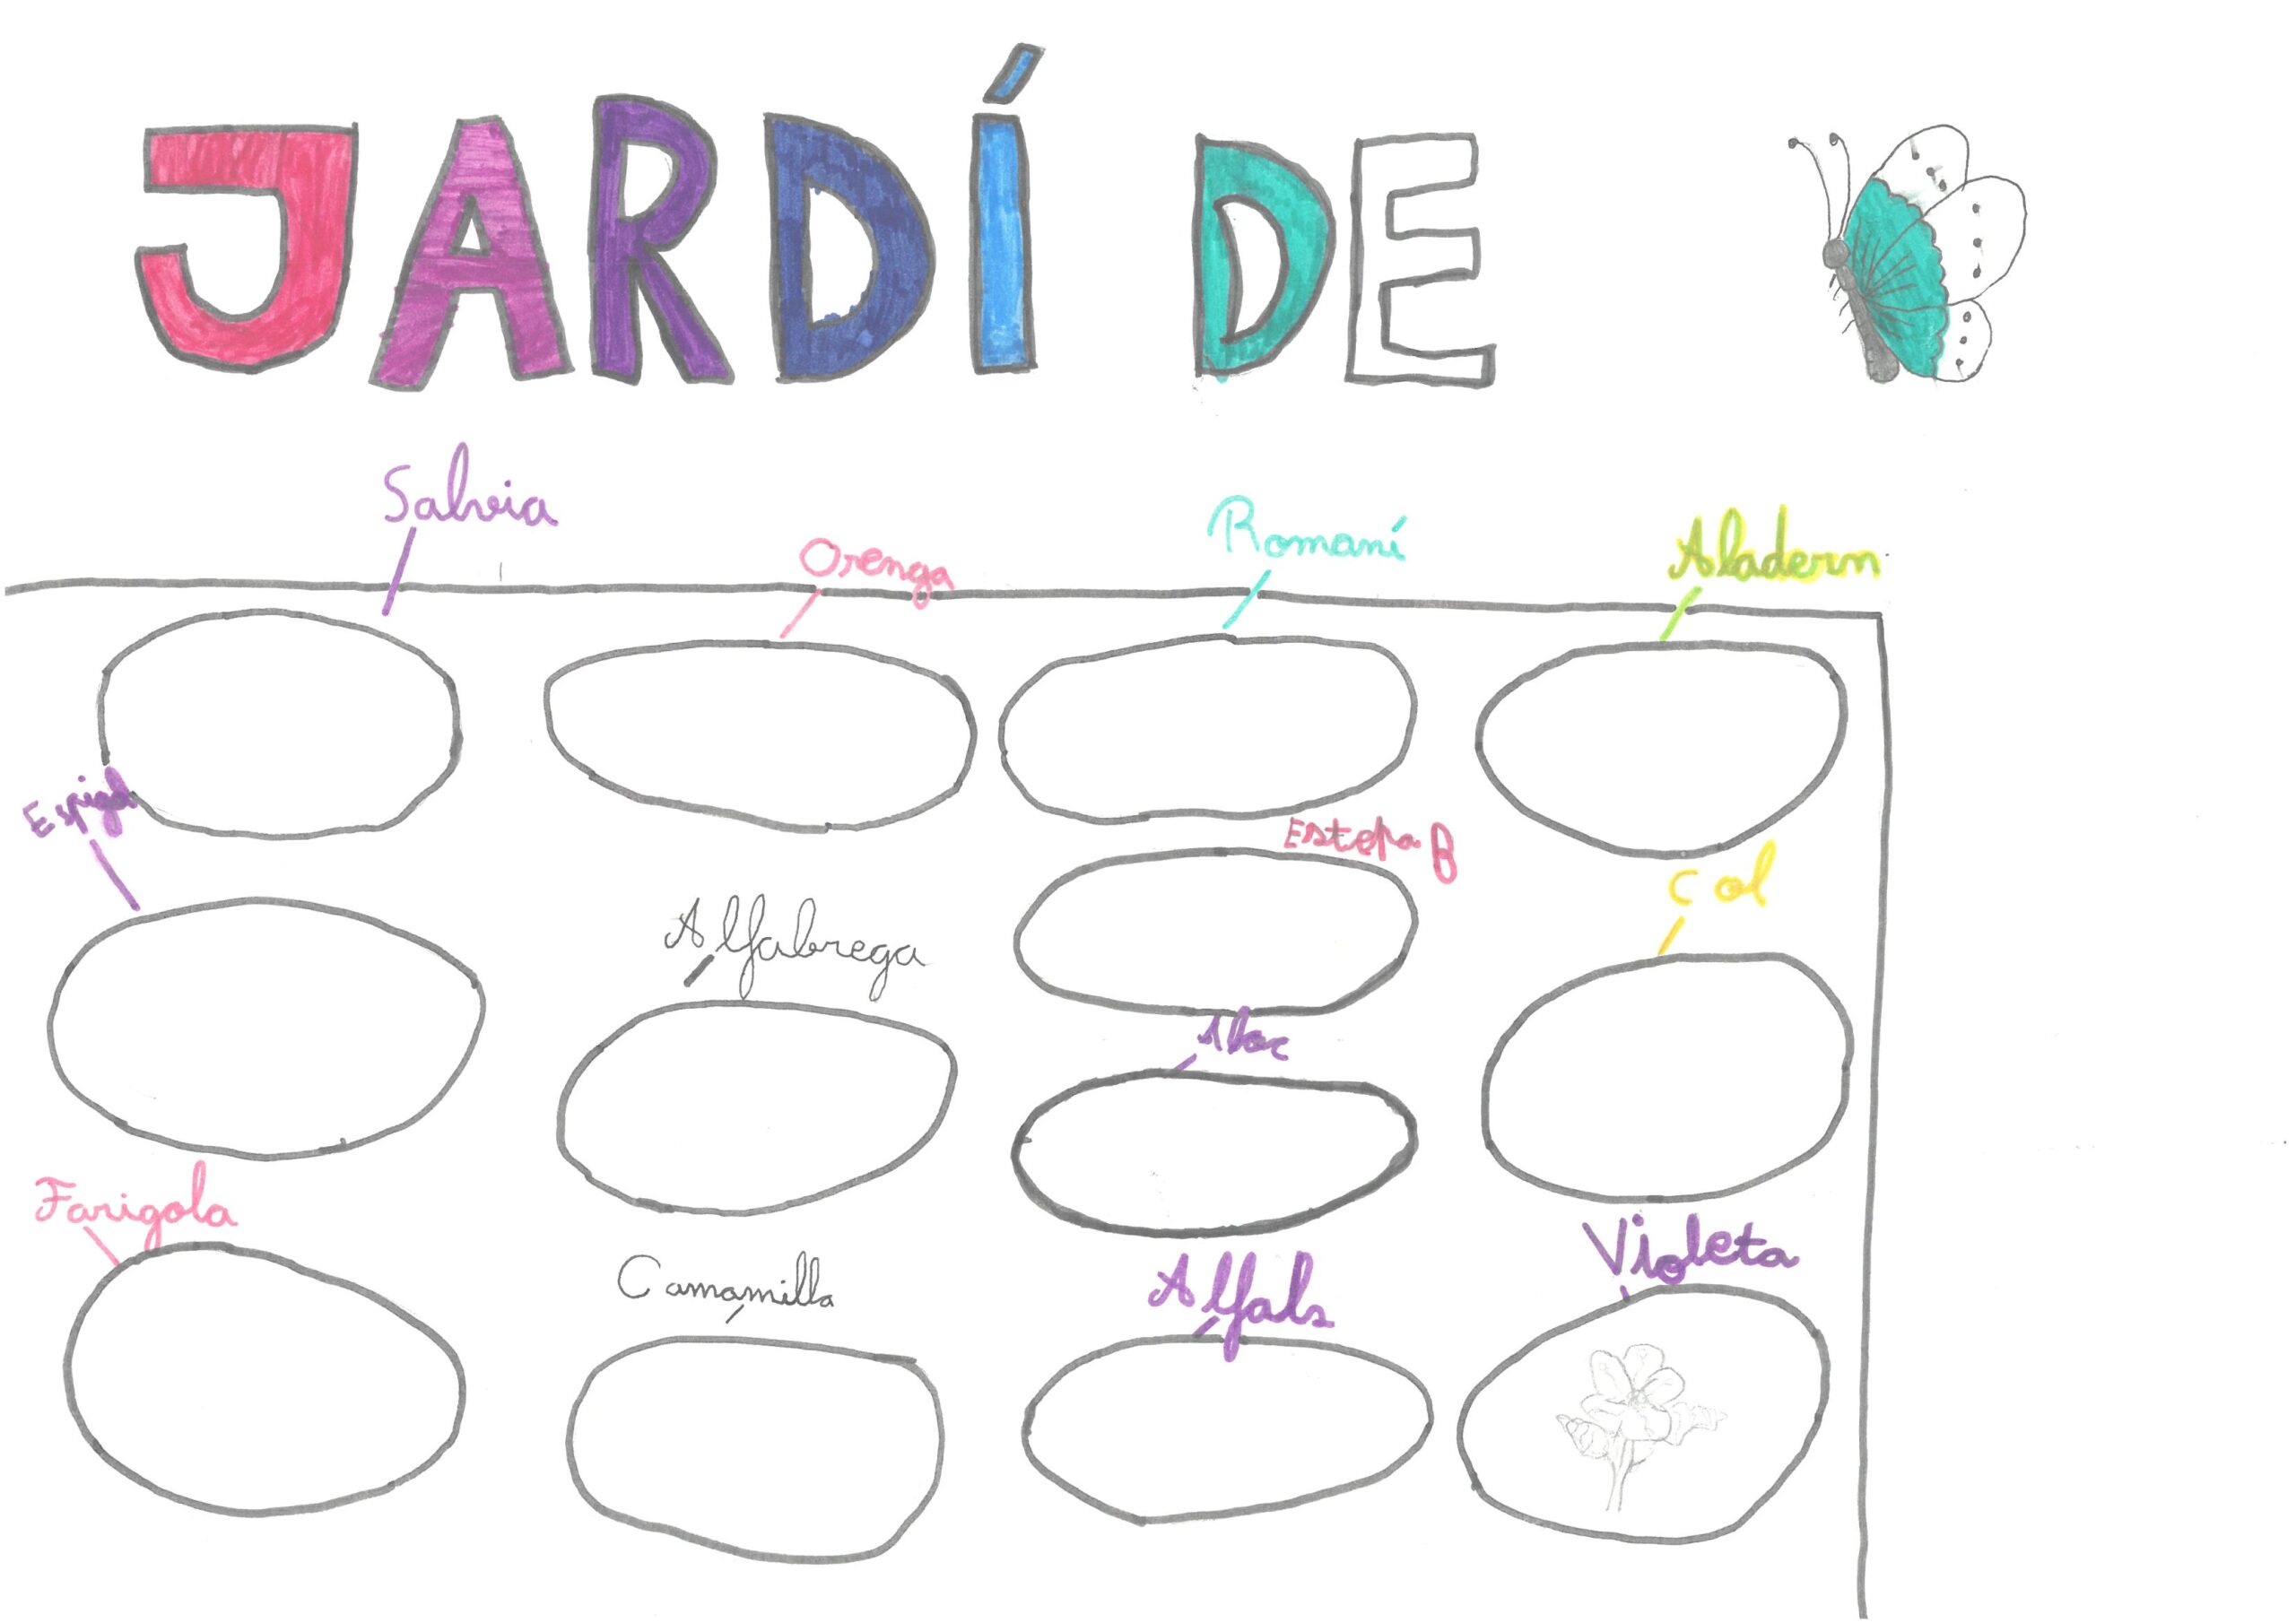 JARDÍ DE
Salvia
Orenga
Romaní
Aladern
Espigol
Estepa B
Col
Alfabrega
Aloc
Farigola
Camamilla
Alfals
Violeta